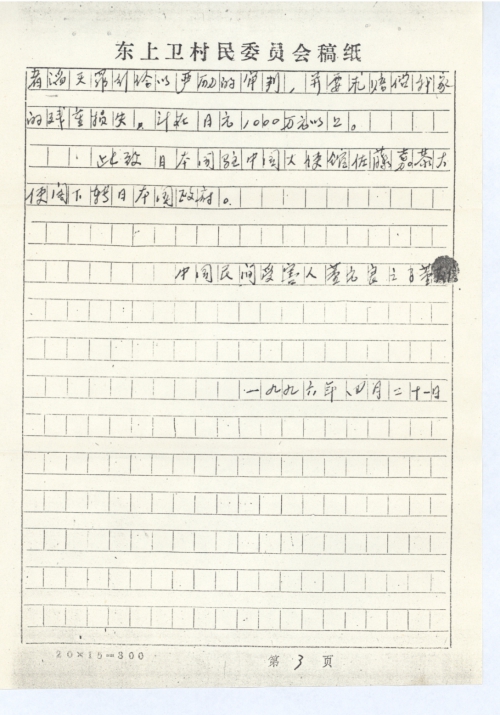 东上卫村民委员会稿纸
者滔天罪行给以严厉的审判，并要求赔偿我家
的残重损失，计礼日元1000万元以上。
此致 日本国驻中国大使馆佐藤嘉恭大
使阁下转日本国政府。
中国民间受害人董良之子董
一九九六年八月二十一日
20×15=300
第 3 页